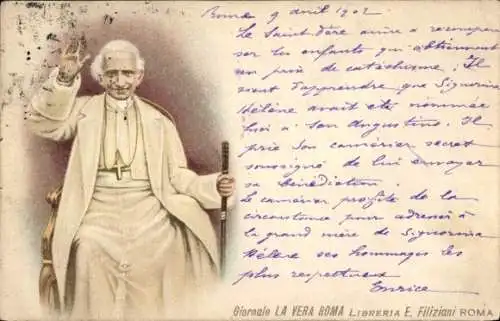 Rome 9 avril 1902
Le Saint Père aime à récompen-
ser les enfants qui obtiennent
un prix de catéchisme; Il
vient d'apprendre que Signorina
Hélène avait été nommée
lui à San Augustino. Il
prie son camérier secret
soussigné de lui envoyer
sa bénédiction.
Le camérier profite de la
circonstance pour adresser à
la grand mère de Signorina
Hélène ses hommages les
plus respectueux
Enrico
Giornale LA VERA ROMA LIBRERIA E. Filiziani ROMA